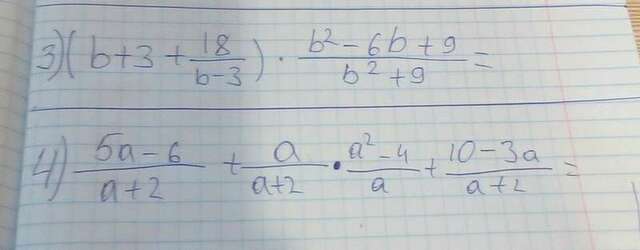 3) (b+3 + 18/(b-3)) · (b²-6b+9)/(b²+9) =
4) (5a-6)/(a+2) + a/(a+2) · (a²-4)/a + (10-3a)/(a+2) =